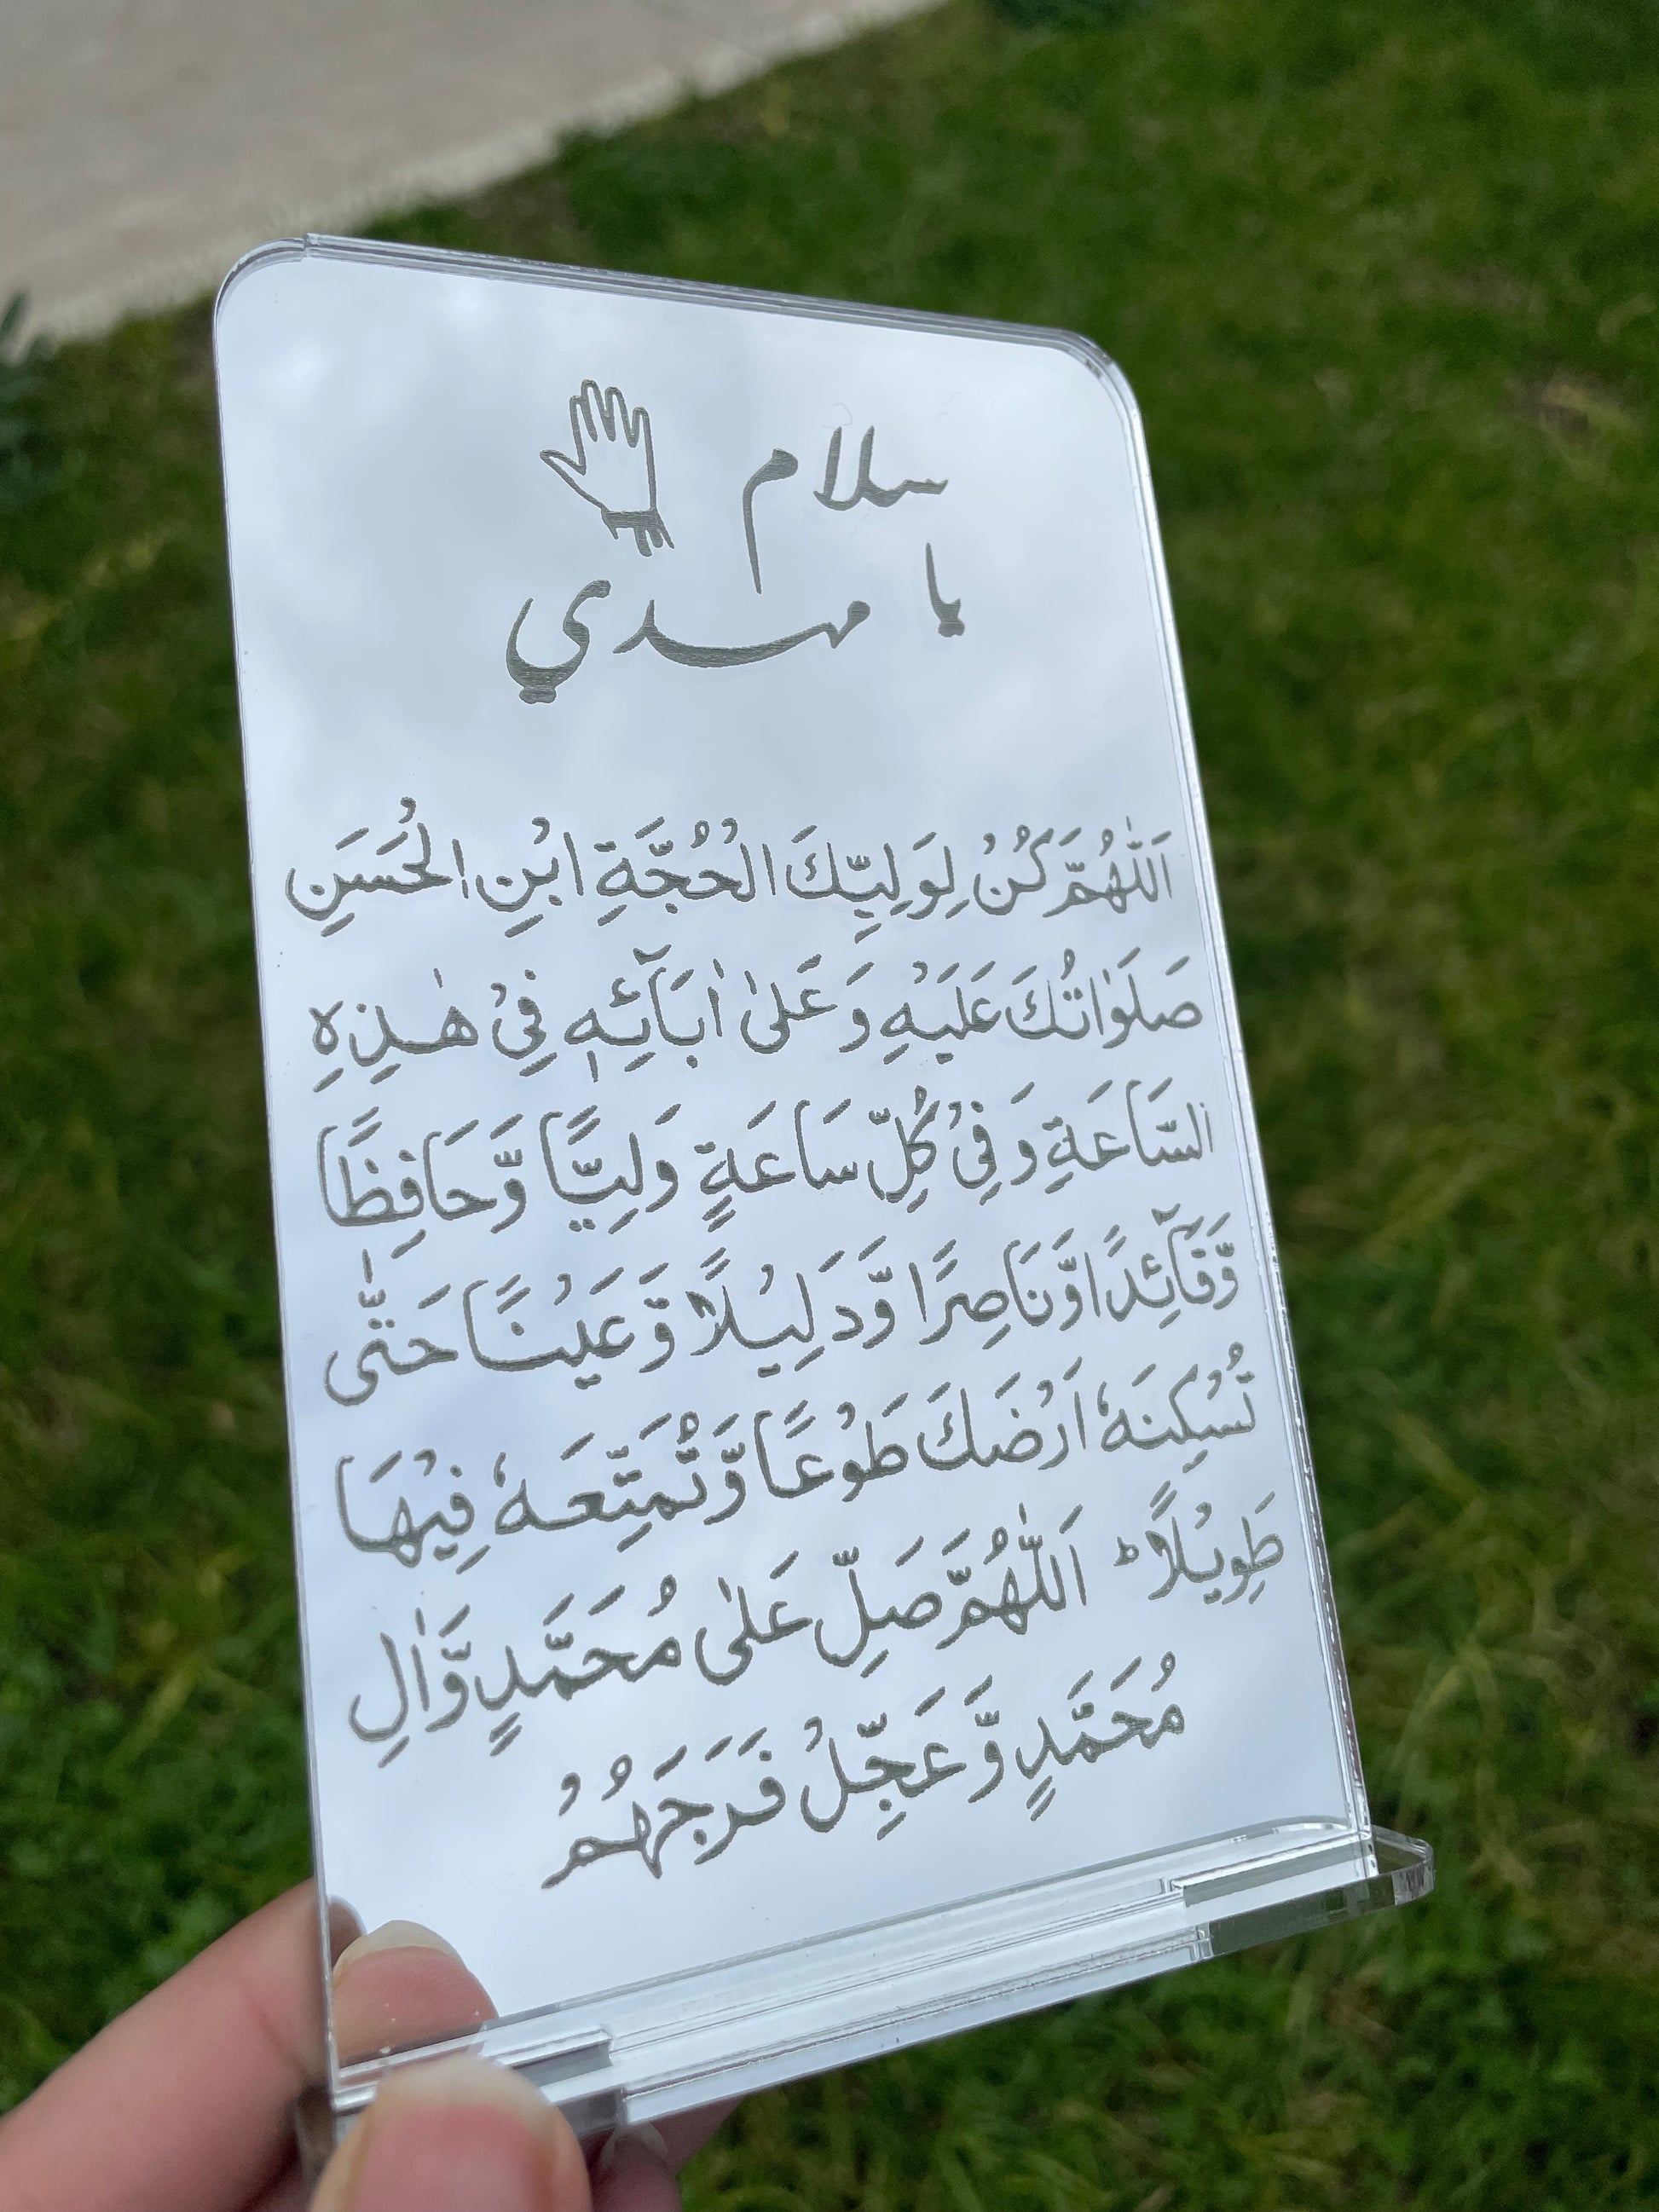 سلام
يا مهدي
اَللّٰهُمَّ كُنْ لِوَلِيِّكَ الْحُجَّةِ ابْنِ الْحُسَنِ
صَلَوٰاتُكَ عَلَيْهِ وَعَلىٰ اٰبَآئِهٖ فِىْ هٰذِهِ
السَّاعَةِ وَفِىْ كُلِّ سَاعَةٍ وَلِيًّا وَّحَافِظًا
وَّقَآئِدًا وَّنَاصِرًا وَّدَلِيْلًا وَّعَيْنًا حَتّٰى
تُسْكِنَهٗ اَرْضَكَ طَوْعًا وَّتُمَتِّعَهٗ فِيْهَا
طَوِيْلًا ؕ اَللّٰهُمَّ صَلِّ عَلىٰ مُحَمَّدٍ وَّاٰلِ
مُحَمَّدٍ وَّعَجِّلْ فَرَجَهُمْ